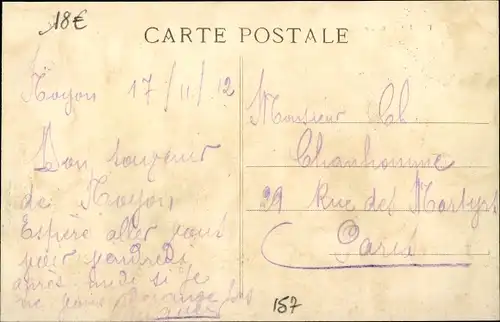 18€
CARTE POSTALE
Noyon 17/11/12
Bon souvenir
de Noyon
Espère aller vous
voir vendredi
après midi si je
ne vous dérange pas
Monsieur Ch.
Chanhomme
39 Rue des Martyrs
Paris
157